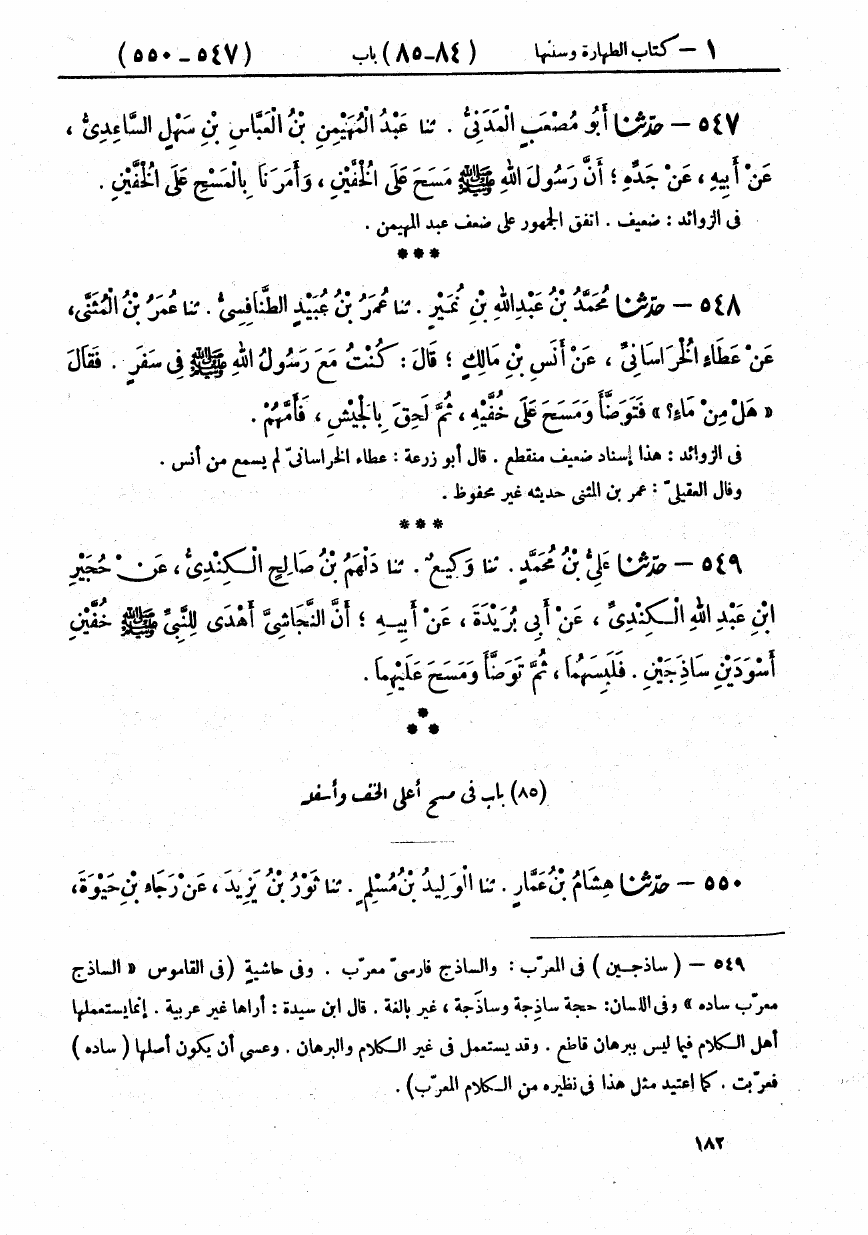 ١ – كتاب الطهارة وسننها (٨٤-٨٥) باب (٥٤٧ – ٥٥٠)
٥٤٧ – حدّثنا أَبُو مُصْعَبٍ الْمَدَنِيُّ . ثنا عَبْدُ الْمُهَيْمِنِ بْنُ الْعَبَّاسِ بْنِ سَهْلٍ السَّاعِدِيُّ ،
عَنْ أَبِيهِ ، عَنْ جَدِّهِ ؛ أَنَّ رَسُولَ اللهِ ﷺ مَسَحَ عَلَى الْخُفَّيْنِ ، وَأَمَرَنَا بِالْمَسْحِ عَلَى الْخُفَّيْنِ .
فى الزوائد : ضعيف . اتفق الجمهور على ضعف عبد المهيمن .
***
٥٤٨ – حدّثنا مُحَمَّدُ بْنُ عَبْدِاللهِ بْنِ نُمَيْرٍ . ثنا عُمَرُ بْنُ عُبَيْدٍ الطَّنَافِسِيُّ . ثنا عُمَرُ بْنُ الْمُثَنَّى ،
عَنْ عَطَاءٍ الْخُرَاسَانِيِّ ، عَنْ أَنَسِ بْنِ مَالِكٍ ؛ قَالَ : كُنْتُ مَعَ رَسُولُ اللهِ ﷺ فِى سَفَرٍ . فَقَالَ
« هَلْ مِنْ مَاءٍ؟ » فَتَوَضَّأَ وَمَسَحَ عَلَى خُفَّيْهِ ، ثُمَّ لَحِقَ بِالْجَيْشِ ، فَأَمَّهُمْ .
فى الزوائد : هذا إسناد ضعيف منقطع . قال أبو زرعة : عطاء الخراسانىّ لم يسمع من أنس .
وقال العقيلىّ : عمر بن المثنى حديثه غير محفوظ .
***
٥٤٩ – حدّثنا عَلِيُّ بْنُ مُحَمَّدٍ . ثنا وَكِيعٌ . ثنا دَلْهَمُ بْنُ صَالِحٍ الْكِنْدِيُّ ، عَنْ حُجَيْرِ
ابْنِ عَبْدِ اللهِ الْكِنْدِيِّ ، عَنْ أَبِى بُرَيْدَةَ ، عَنْ أَبِيهِ ؛ أَنَّ النَّجَاشِيَّ أَهْدَى لِلنَّبِيِّ ﷺ خُفَّيْنِ
أَسْوَدَيْنِ سَاذَجَيْنِ . فَلَبِسَهُمَا ، ثُمَّ تَوَضَّأَ وَمَسَحَ عَلَيْهِمَا .
***
(٨٥) باب فى مسح أعلى الخف وأسفله
٥٥٠ – حدّثنا هِشَامُ بْنُ عَمَّارٍ . ثنا الْوَلِيدُ بْنُ مُسْلِمٍ . ثنا ثَوْرُ بْنُ يَزِيدَ ، عَنْ رَجَاءِ بْنِ حَيْوَةَ ،
٥٤٩ – ( ساذجين ) فى المعرّب : والساذج فارسىّ معرّب . وفى حاشيةٍ (فى القاموس « الساذج
معرّب ساده » وفى اللسان: حجة ساذِجة وساذَجة ، غير بالغة . قال ابن سيدة : أراها غير عربية . إنما يستعملها
أهل الكلام فيما ليس ببرهان قاطع . وقد يستعمل فى غير الكلام والبرهان . وعسى أن يكون أصلها ( ساده )
فعرّبت . كما اعتيد مثل هذا فى نظيره من الكلام المعرّب) .
١٨٢